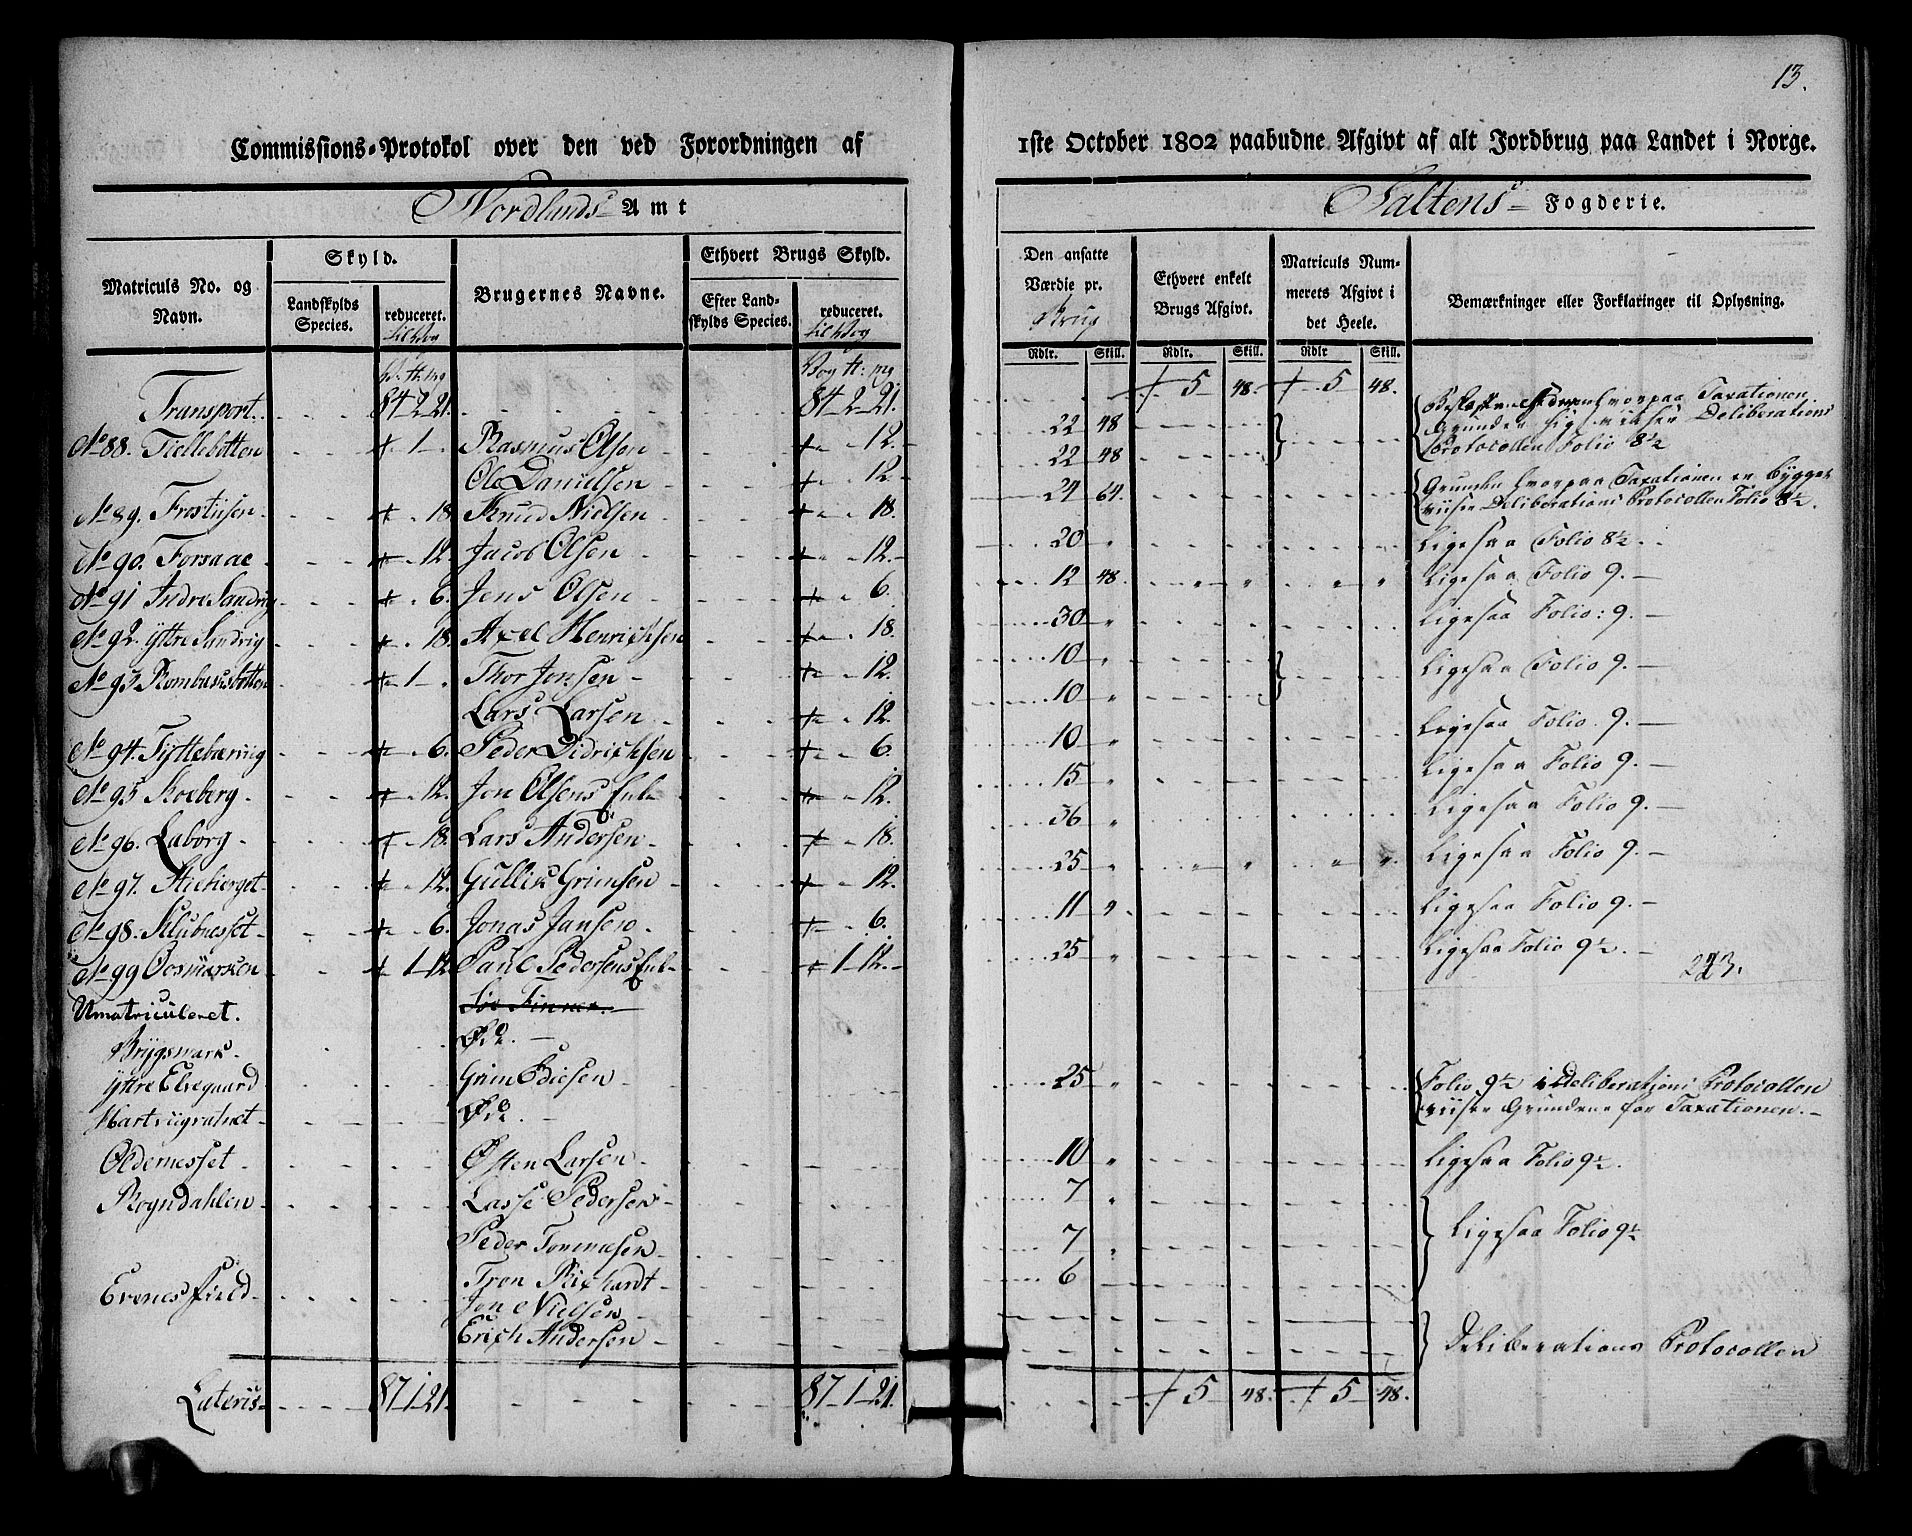 13.
Commissions-Protokol over den ved Forordningen af 1ste October 1802 paabudne Afgivt af alt Jordbrug paa Landet i Norge.
Nordlands Amt
Saltens Fogderie.
Matriculs No. og Navn.
Skyld.
Landskylds Species.
reduceret. til Vog
Brugernes Navne.
Ethvert Brugs Skyld.
Efter Landskylds Species.
reduceret. til Vog
Den ansatte Værdie pr. Brug
Ethvert enkelt Brugs Afgivt.
Matriculs Nummerets Afgivt i det Heele.
Bemærkninger eller Forklaringer til Oplysning.
Rdlr. Skill. Rdlr. Skill. Rdlr Skill.
Transport. 84 2 21. 84 - 2 - 21. 5 48. 5 48.
No 88. Fiellebotten 1 Rasmus Olsen 12. 22 48
Grunden Deliberations Protocollen Folio 8½
Ole Danielsen 12 22 48
No 89. Frostiisen 18. Knud Nielsen 18. 24 64. Grunden hvorpaa Taxationen er bygget
viiser Deliberations Protocollen Folio 8½.
No 90. Forsaae 12. Jacob Olsen 12. 20 " Ligesaa Folio 8½.
No 91 Indre Sandvig 6. Jens Olsen 6. 12 48. Ligesaa Folio 9.
No 92. Yttre Sandvig 18. Axel Henrichsen 18. 30 Ligesaa Folio: 9.
No 93 Rombaksbotten 1 Thor Jonsen 12. 10 " Ligesaa Folio 9.
Lars Larsen 12. 10 "
No 94. Tyttebærvig 6. Peder Didrichsen 6. 10 " Ligesaa Folio 9.
No 95 Koeberg 12. Jon Olsens Enk 12. 15 " Ligesaa Folio 9.
No 96. Laborg 18. Lars Andersen 18. 36 " Ligesaa Folio 9.
No 97. Stieberget 12. Gullik Grimsen 12. 25 " Ligesaa Folio 9.
No 98. Klubnesset 6. Jonas Jansen 6. 11 " Ligesaa Folio 9.
No 99 1-12. Paul Pedersens Enk 1-12. 25 Ligesaa Folio 9½.
Umatriculeret.
Øde.
Yttre Elvegaard Grim Ediesen 25 " Folio 9½ i Deliberations Protocollen
viiser Grundene for Taxationen.
Øde.
Oldernesset Østen Larsen 10 " Ligesaa Folio 9½.
Rogndahlen Lasse Pedersen 7 "
Peder 7 " Ligesaa Folio 9½
Evenesfield Tron Richardt 6
Jon Nielsen
Erich Andersen Deliberations Protocollen
Lateris 87-1-21. 87-1-21. 5 48. 5 48.